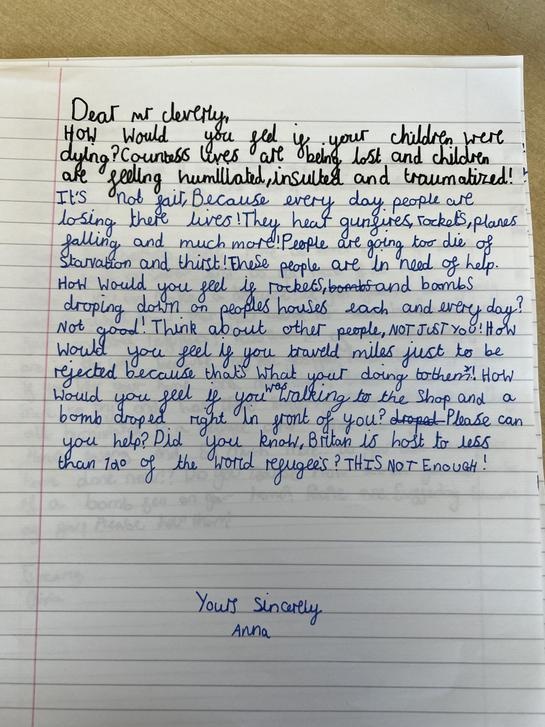 Dear mr cleverly,
How would you feel if your children were
dying? Countess lives are being lost and children
are feeling humillated, insulted and traumatized!
It's not fair, Because every day people are
losing there lives! They hear gunfires, rockets, planes
falling and much more! People are going too die of
Starvation and thirst! these people are in need of help.
How would you feel if rockets, bombs and bombs
droping down on peoples houses each and every day?
Not good! Think about other people, NOT JUST YOU! How
would you feel if you traveld miles just to be
rejected because that's what your doing to them?! How
would you feel if you was walking to the shop and a
bomb droped right in front of you? droped Please can
you help? Did you know, Britan is host to less
than 1% of the world refugee's? THIS NOT ENOUGH!
Yours Sincerely
Anna